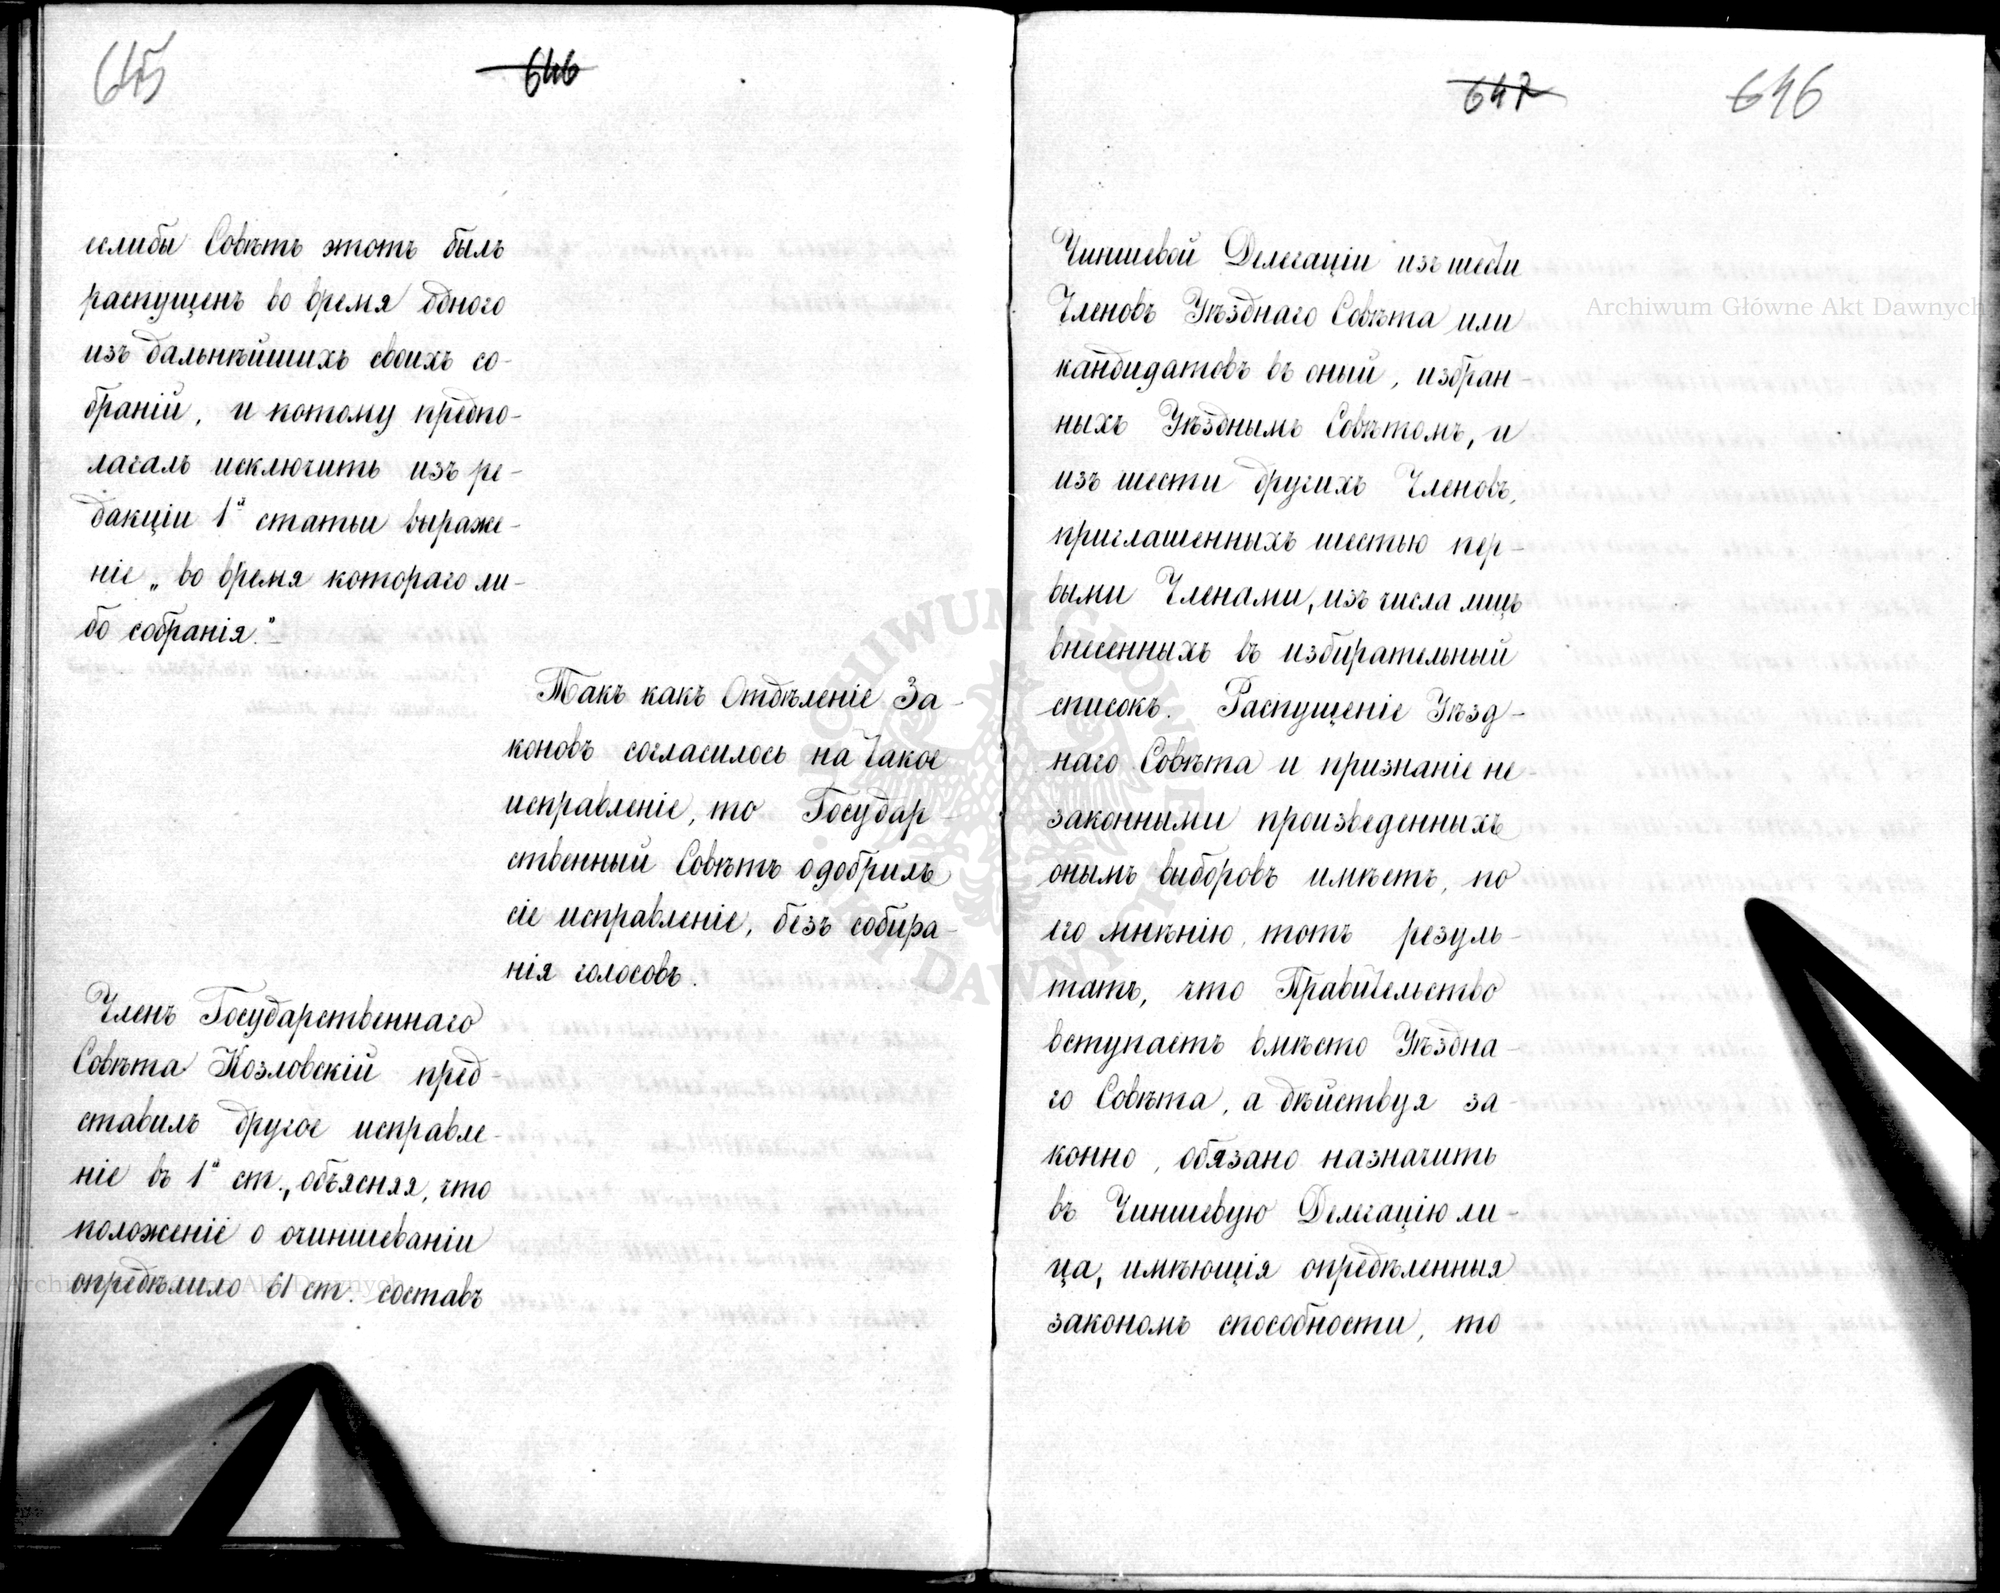 645
646
еслибы Совѣтъ этотъ былъ
распущенъ во время одного
изъ дальнѣйшихъ своихъ со-
браній, и потому предпо-
лагалъ исключить изъ ре-
дакціи 1й статьи выраже-
ніе „во время котораго ли-
бо собранія."
Такъ какъ Отдѣленіе За-
коновъ согласилось на такое
исправленіе, то Государ-
ственный Совѣтъ одобрилъ
сіе исправленіе, безъ собира-
нія голосовъ.
Членъ Государственнаго
Совѣта Козловскій пред-
ставилъ другое исправле-
ніе въ 1й ст., объясняя, что
положеніе о очиншеваніи
опредѣлило 61 ст. составъ
647
646
Чиншевой Делегаціи изъ шести
Членовъ Уѣзднаго Совѣта или
кандидатовъ въ оный, избран-
ныхъ Уѣзднымъ Совѣтомъ, и
изъ шести другихъ Членовъ,
приглашенныхъ шестью пер-
выми Членами, изъ числа лицъ
внесенныхъ въ избирательный
списокъ. Распущеніе Уѣзд-
наго Совѣта и признаніе не-
законными произведенныхъ
онымъ выборовъ имѣетъ, по
его мнѣнію, тотъ резуль-
татъ, что Правительство
вступаетъ вмѣсто Уѣздна-
го Совѣта, а дѣйствуя за-
конно, обязано назначить
въ Чиншевую Делегацію ли-
ца, имѣющія опредѣленныя
закономъ способности, то
Archiwum Główne Akt Dawnych
Archiwum Główne Akt Dawnych
ARCHIWUM GŁÓWNE AKT DAWNYCH